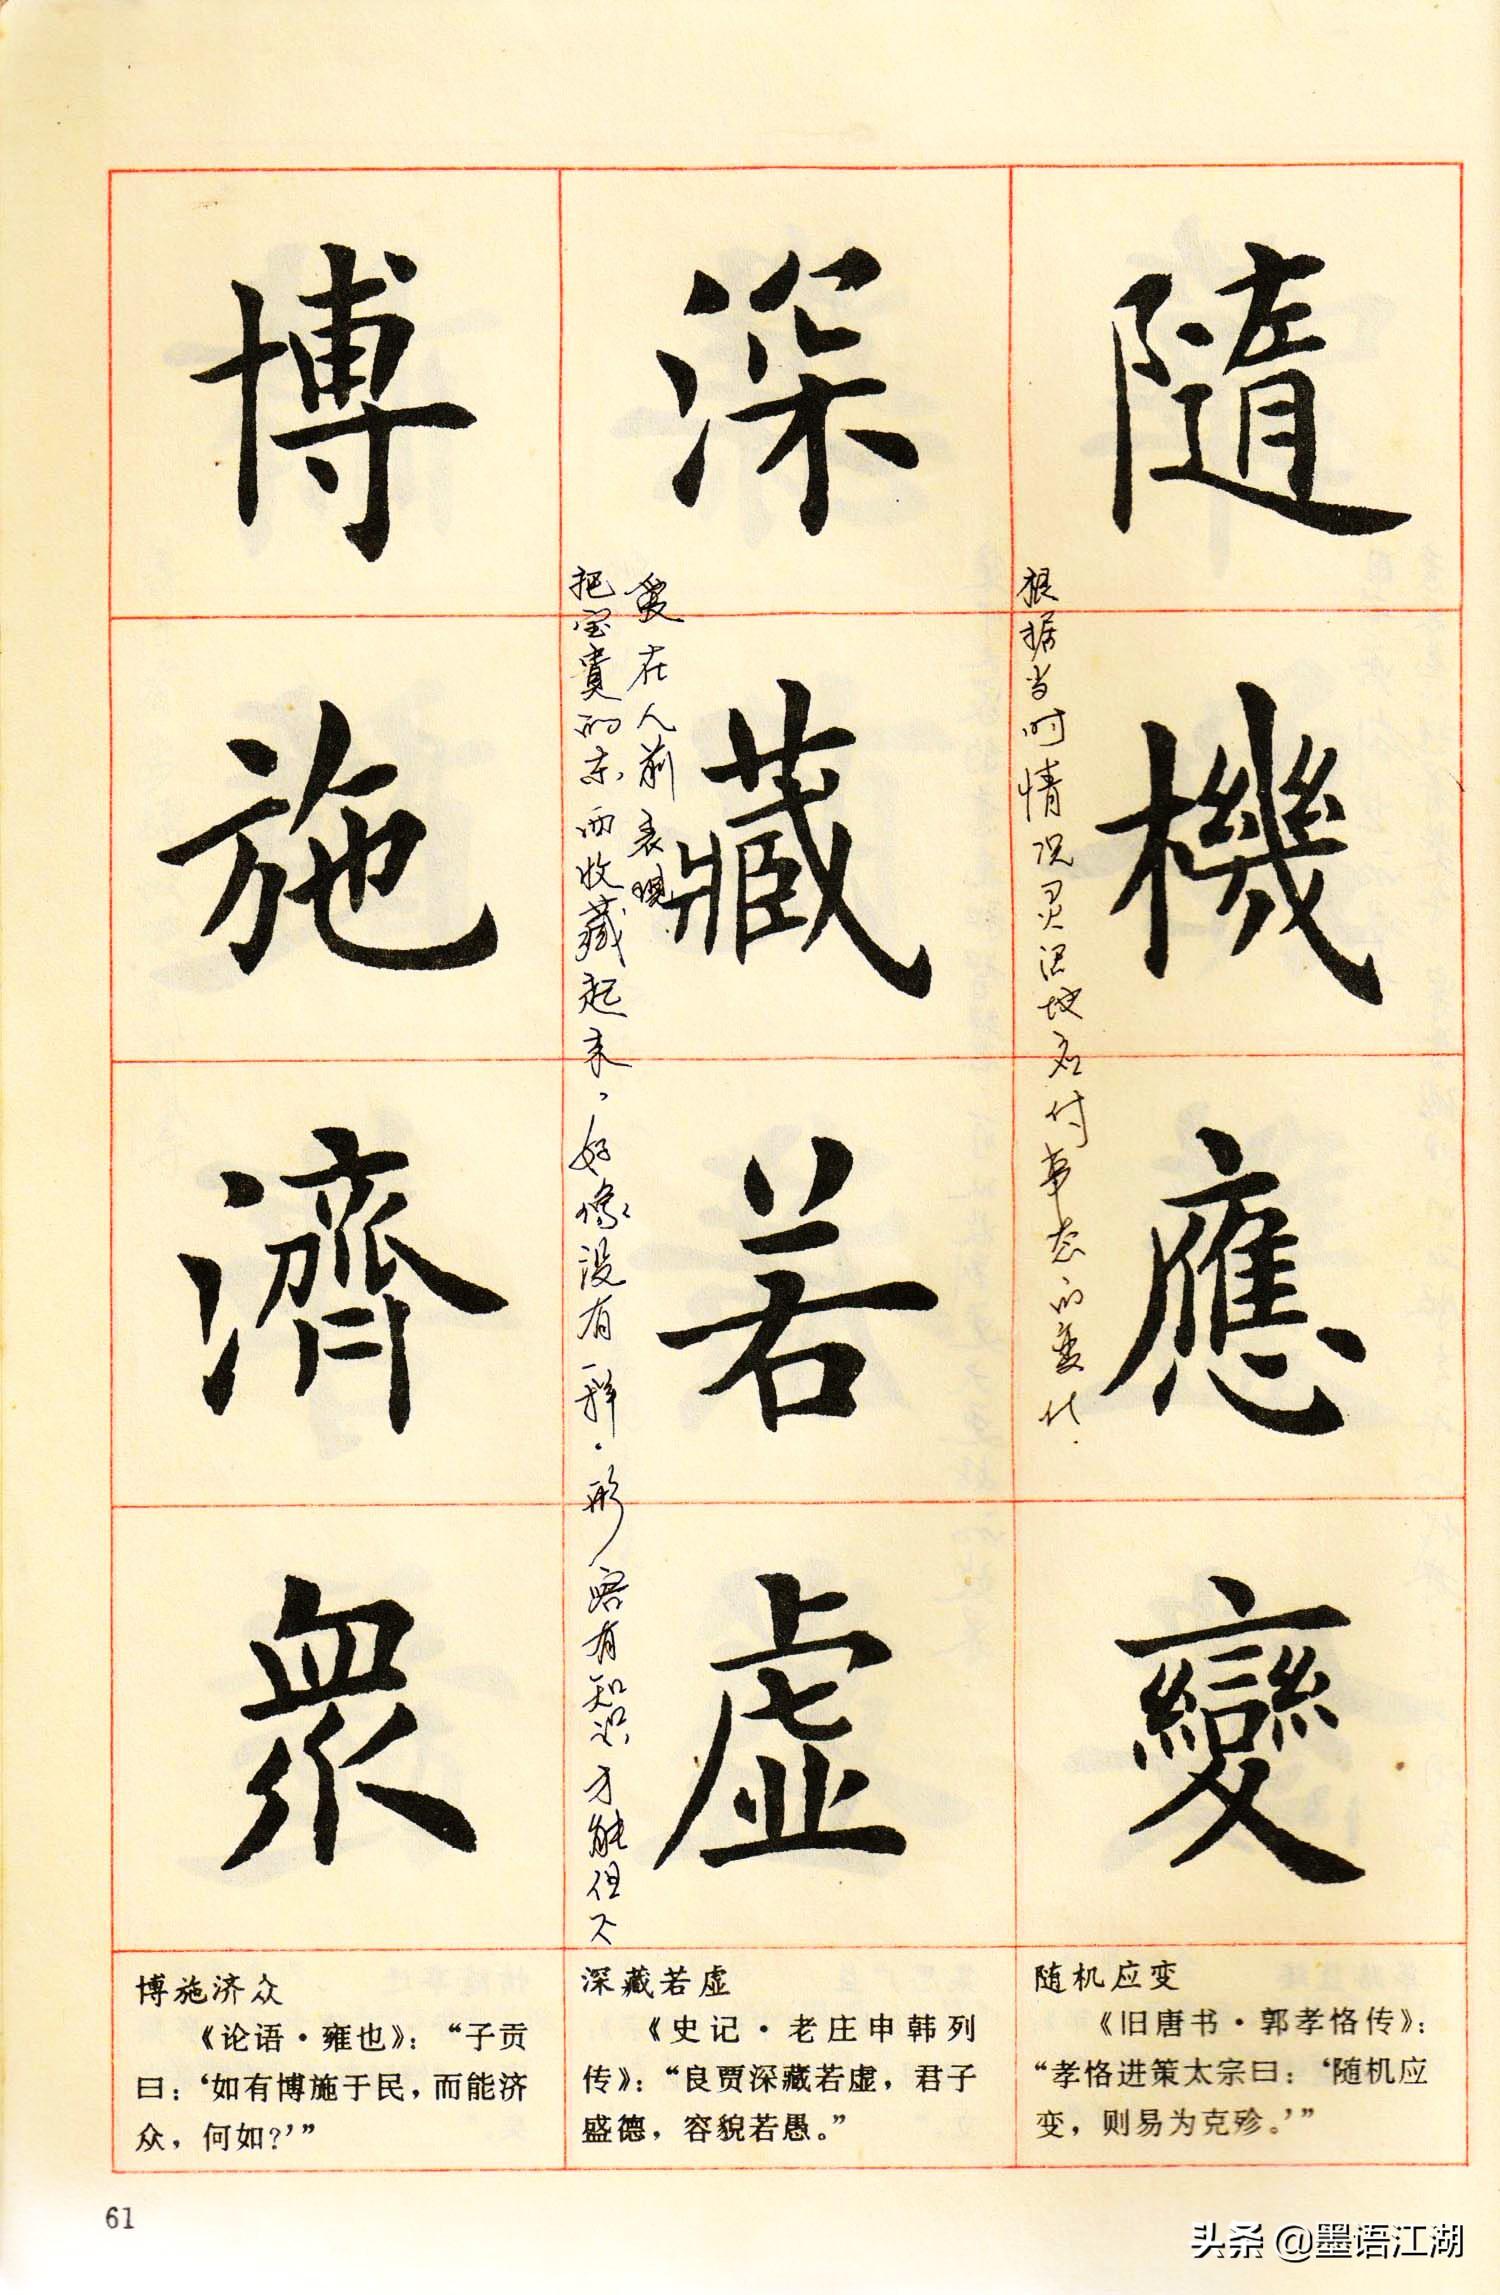 隨機應變
根据当时情况灵活地应付事态的变化.
深藏若虚
把宝贵的东西收藏起来，好像没有一样.形容有知识才能但不
爱在人前表现.
博施濟衆
随机应变
《旧唐书·郭孝恪传》：
“孝恪进策太宗曰：‘随机应
变，则易为克殄。’”
深藏若虚
《史记·老庄申韩列
传》：“良贾深藏若虚，君子
盛德，容貌若愚。”
博施济众
《论语·雍也》：“子贡
曰：‘如有博施于民，而能济
众，何如？’”
61
头条 @墨语江湖